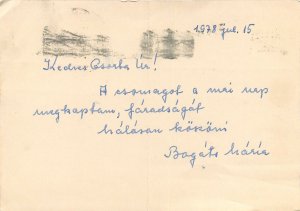 1978 júl. 15
Kedves Csorba Úr!
A csomagot a mai nap
megkaptam, fáradságát
hálásan köszöni
Bogáts Mária